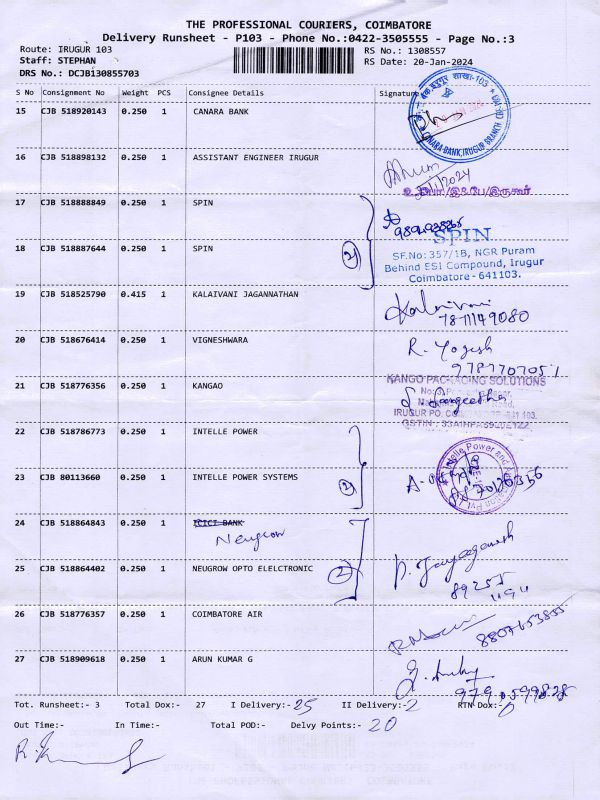 THE PROFESSIONAL COURIERS, COIMBATORE
Delivery Runsheet - P103 - Phone No.:0422-3505555 - Page No.:3
Route: IRUGUR 103 RS No.: 1308557
Staff: STEPHAN RS Date: 20-Jan-2024
DRS No.: DCJB130855703
S No Consignment No Weight PCS Consignee Details Signature
15 CJB 518920143 0.250 1 CANARA BANK
CANARA BANK, IRUGUR BRANCH
16 CJB 518898132 0.250 1 ASSISTANT ENGINEER IRUGUR
17 CJB 518888849 0.250 1 SPIN
SPIN
18 CJB 518887644 0.250 1 SPIN 2
SF.No:357/1B, NGR Puram
Behind ESI Compound, Irugur
Coimbatore - 641103.
19 CJB 518525790 0.415 1 KALAIVANI JAGANNATHAN Kalaivani
7871149080
20 CJB 518676414 0.250 1 VIGNESHWARA R. Yogesh
9787707051
21 CJB 518776356 0.250 1 KANGAO
KANGO PACKAGING SOLUTIONS
S. Sangeetha
IRUGUR PO,
22 CJB 518786773 0.250 1 INTELLE POWER
Intelle Power and
23 CJB 80113660 0.250 1 INTELLE POWER SYSTEMS 2
24 CJB 518864843 0.250 1 ICICI BANK
Neugrow
25 CJB 518864402 0.250 1 NEUGROW OPTO ELELCTRONIC 2 P. Jayaganesh
89255
26 CJB 518776357 0.250 1 COIMBATORE AIR
8807653855
27 CJB 518909618 0.250 1 ARUN KUMAR G
Tot. Runsheet:- 3 Total Dox:- 27 I Delivery:- 25 II Delivery:- 2 RTN Dox:- 0
Out Time:- In Time:- Total POD:- Delvy Points:- 20